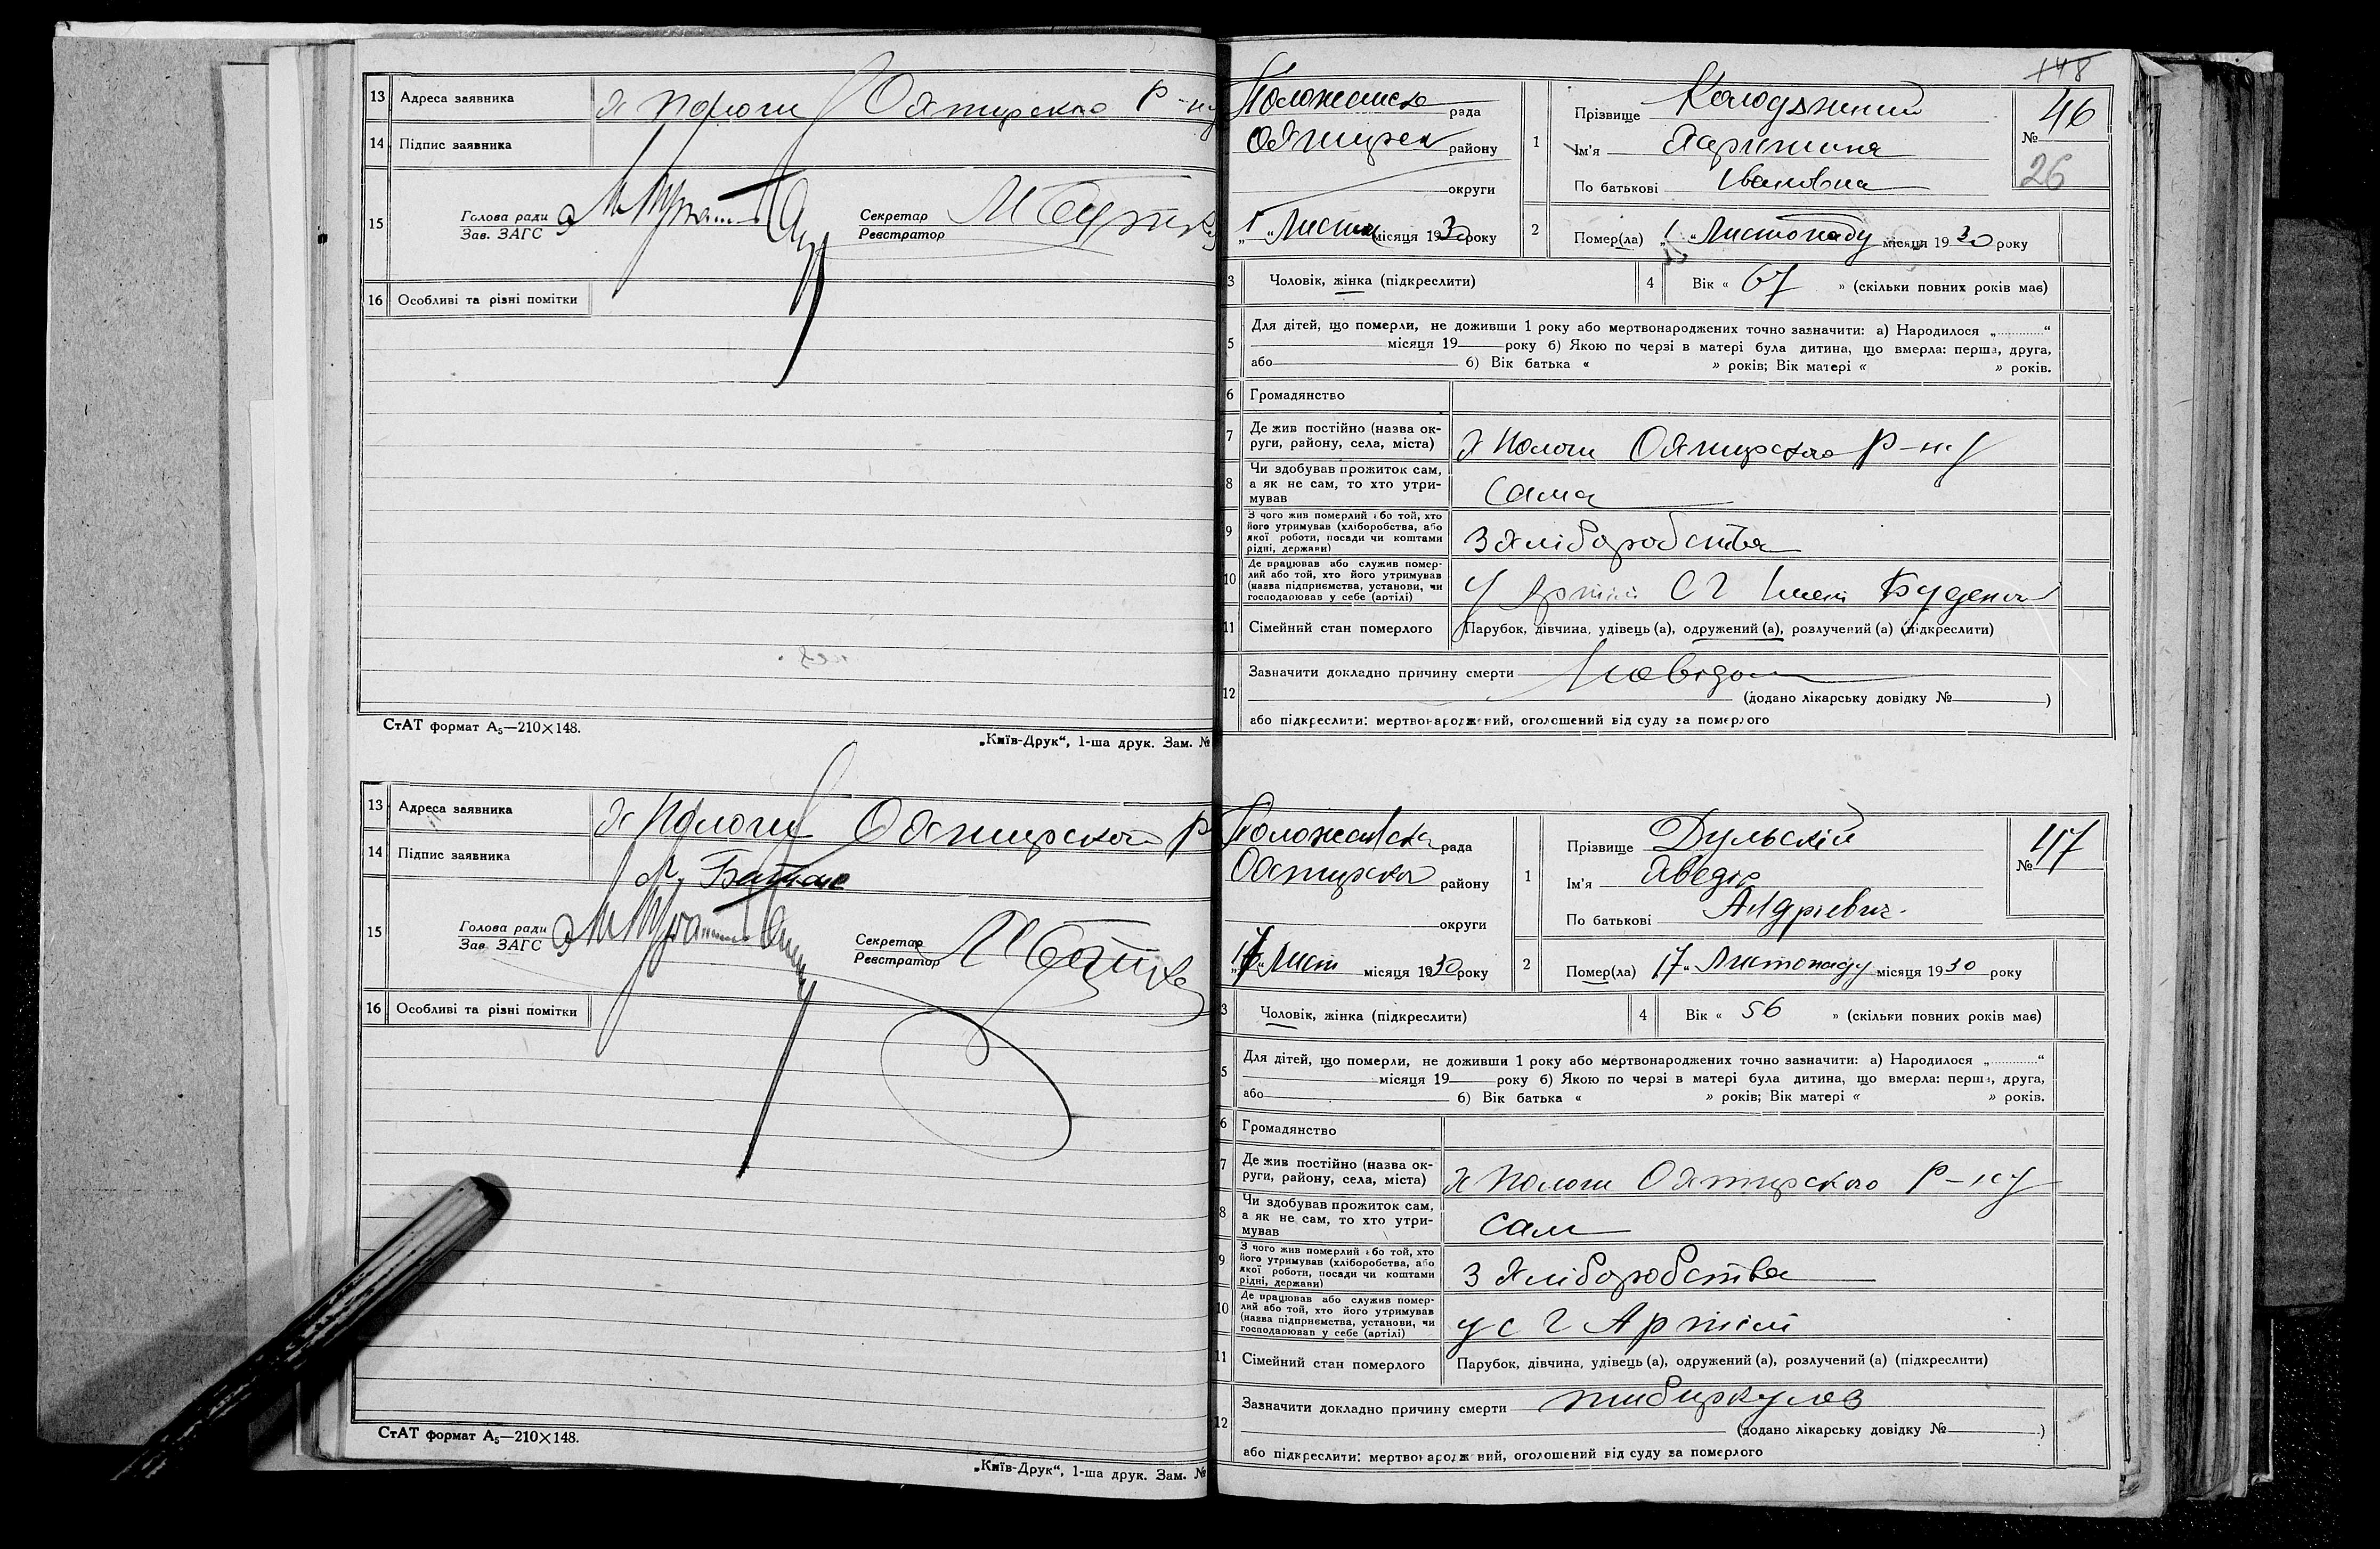 13 Адреса заявника х Пологи Охтирского Р-ну
14 Підпис заявника
15 Голова ради
Зав. ЗАГС
Секретар
Реєстратор
16 Особливі та різні помітки
СтАТ формат А5—210×148.
„Київ-Друк“, 1-ша друк. Зам. №
13 Адреса заявника х Пологи Охтирского Р
14 Підпис заявника
15 Голова ради
Зав. ЗАГС
Секретар
Реєстратор
16 Особливі та різні помітки
СтАТ формат А5—210×148.
„Київ-Друк“, 1-ша друк. Зам. №
148
рада
району
округи
„1“ Листоп місяця 1930 року
1 Прізвище Колодяжний
Ім'я
По батькові Івановна
№ 46
26
2 Помер(ла) „1“ Листопаду місяця 1930 року
3 Чоловік, жінка (підкреслити)
4 Вік « 67 » (скільки повних років має)
5 Для дітей, що померли, не доживши 1 року або мертвонароджених точно зазначити: а) Народилося „ “
місяця 19 року б) Якою по черзі в матері була дитина, що вмерла: перша, друга,
або б) Вік батька « » років; Вік матері « » років.
6 Громадянство
7 Де жив постійно (назва ок-
руги, району, села, міста) х Пологи Охтирского Р-ну
8 Чи здобував прожиток сам,
а як не сам, то хто утри-
мував сама
9 З чого жив померлий або той, хто
його утримував (хліборобства, або
якої роботи, посади чи коштами
рідні, держави) З хліборобства
10 Де працював або служив помер-
лий або той, хто його утримував
(назва підприємства, установи, чи
господарював у себе (артілі) У Артілі С Г Імені Буденого
11 Сімейний стан померлого Парубок, дівчина, удівець (а), одружений (а), розлучений (а) (підкреслити)
12 Зазначити докладно причину смерти
(додано лікарську довідку № )
або підкреслити: мертвонароджений, оголошений від суду за померлого
рада
району
округи
„17“ Лист місяця 1930 року
1 Прізвище Дульский
Ім'я
По батькові Андрієвич
№ 47
2 Помер(ла) 17“ Листопаду місяця 1930 року
3 Чоловік, жінка (підкреслити)
4 Вік « 56 » (скільки повних років має)
5 Для дітей, що померли, не доживши 1 року або мертвонароджених точно зазначити: а) Народилося „ “
місяця 19 року б) Якою по черзі в матері була дитина, що вмерла: перша, друга,
або б) Вік батька « » років; Вік матері « » років.
6 Громадянство
7 Де жив постійно (назва ок-
руги, району, села, міста) х Пологи Охтирского Р-ну
8 Чи здобував прожиток сам,
а як не сам, то хто утри-
мував сам
9 З чого жив померлий або той, хто
його утримував (хліборобства, або
якої роботи, посади чи коштами
рідні, держави) З хліборобства
10 Де працював або служив помер-
лий або той, хто його утримував
(назва підприємства, установи, чи
господарював у себе (артілі) у с г Артілі
11 Сімейний стан померлого Парубок, дівчина, удівець (а), одружений (а), розлучений (а) (підкреслити)
12 Зазначити докладно причину смерти тибиркулоз
(додано лікарську довідку № )
або підкреслити: мертвонароджений, оголошений від суду за померлого